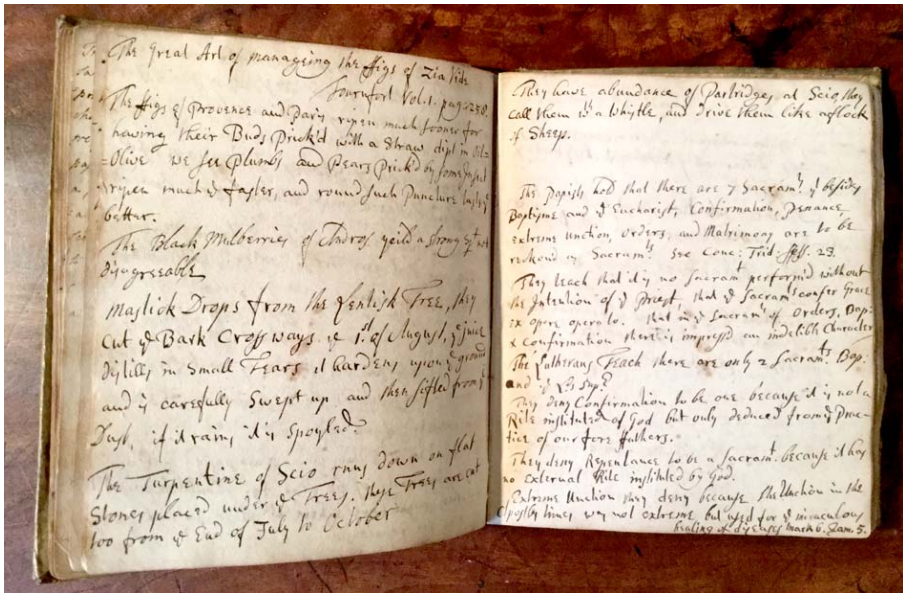 The Great Art of manageing the ffigs of Zia Vide
Tournfort Vol. 1. pag: 258.
The ffigs of Provence and Paris ripen much sooner for
having their Buds Prick'd with a Straw dipt in Oil=
=Olive we see Plumbs and Pears Prick'd by some Insect
ripen much ye faster, and round such Puncture tastes
better.
The Black Mulberries of Andros yeild a strong spt not
disagreeable
Mastick Drops from the Lentisk Tree, they
Cut ye Bark Crossways ye 1st of August, ye juice
distills in Small Tears it hardens upon ye ground
and is carefully Swept up and then sifted from ye
Dust, if it rains it is Spoyled.
The Turpentine of Scio runs down on flat
Stones placed under ye Trees. these Trees are cut
too from ye End of July to October
They have abundance of Partridges at Scio, they
call them wth a Whistle, and drive them like a flock
of Sheep.
The Papists hold that there are 7 Sacramts yt besides
Baptisme and ye Eucharist, Confirmation, penance
extreme unction, orders, and Matrimony are to be
reckond as Sacramts. See Conc: Trid: Sess. 23.
They teach that it is no Sacramt performd without
the Intention of ye Priest, that ye Sacramts confer Grace
ex opere operato. that in ye Sacramts of Orders, Bap:
& Confirmation there is impressd an indelible Character
The Lutherans Teach there are only 2 Sacramts. Bap:
and ye Lds Supr
They deny Confirmation to be one because it is not a
Rite instituted of God but only deduced from ye Prac=
tice of our fore fathers.
They deny Repentance to be a Sacramt. because it has
no external Rite instituted by God.
Extreme Unction they deny because the Unction in the
Apostles times was not extreme but used for ye miraculous
healing of diseases mark 6. Jam. 5.